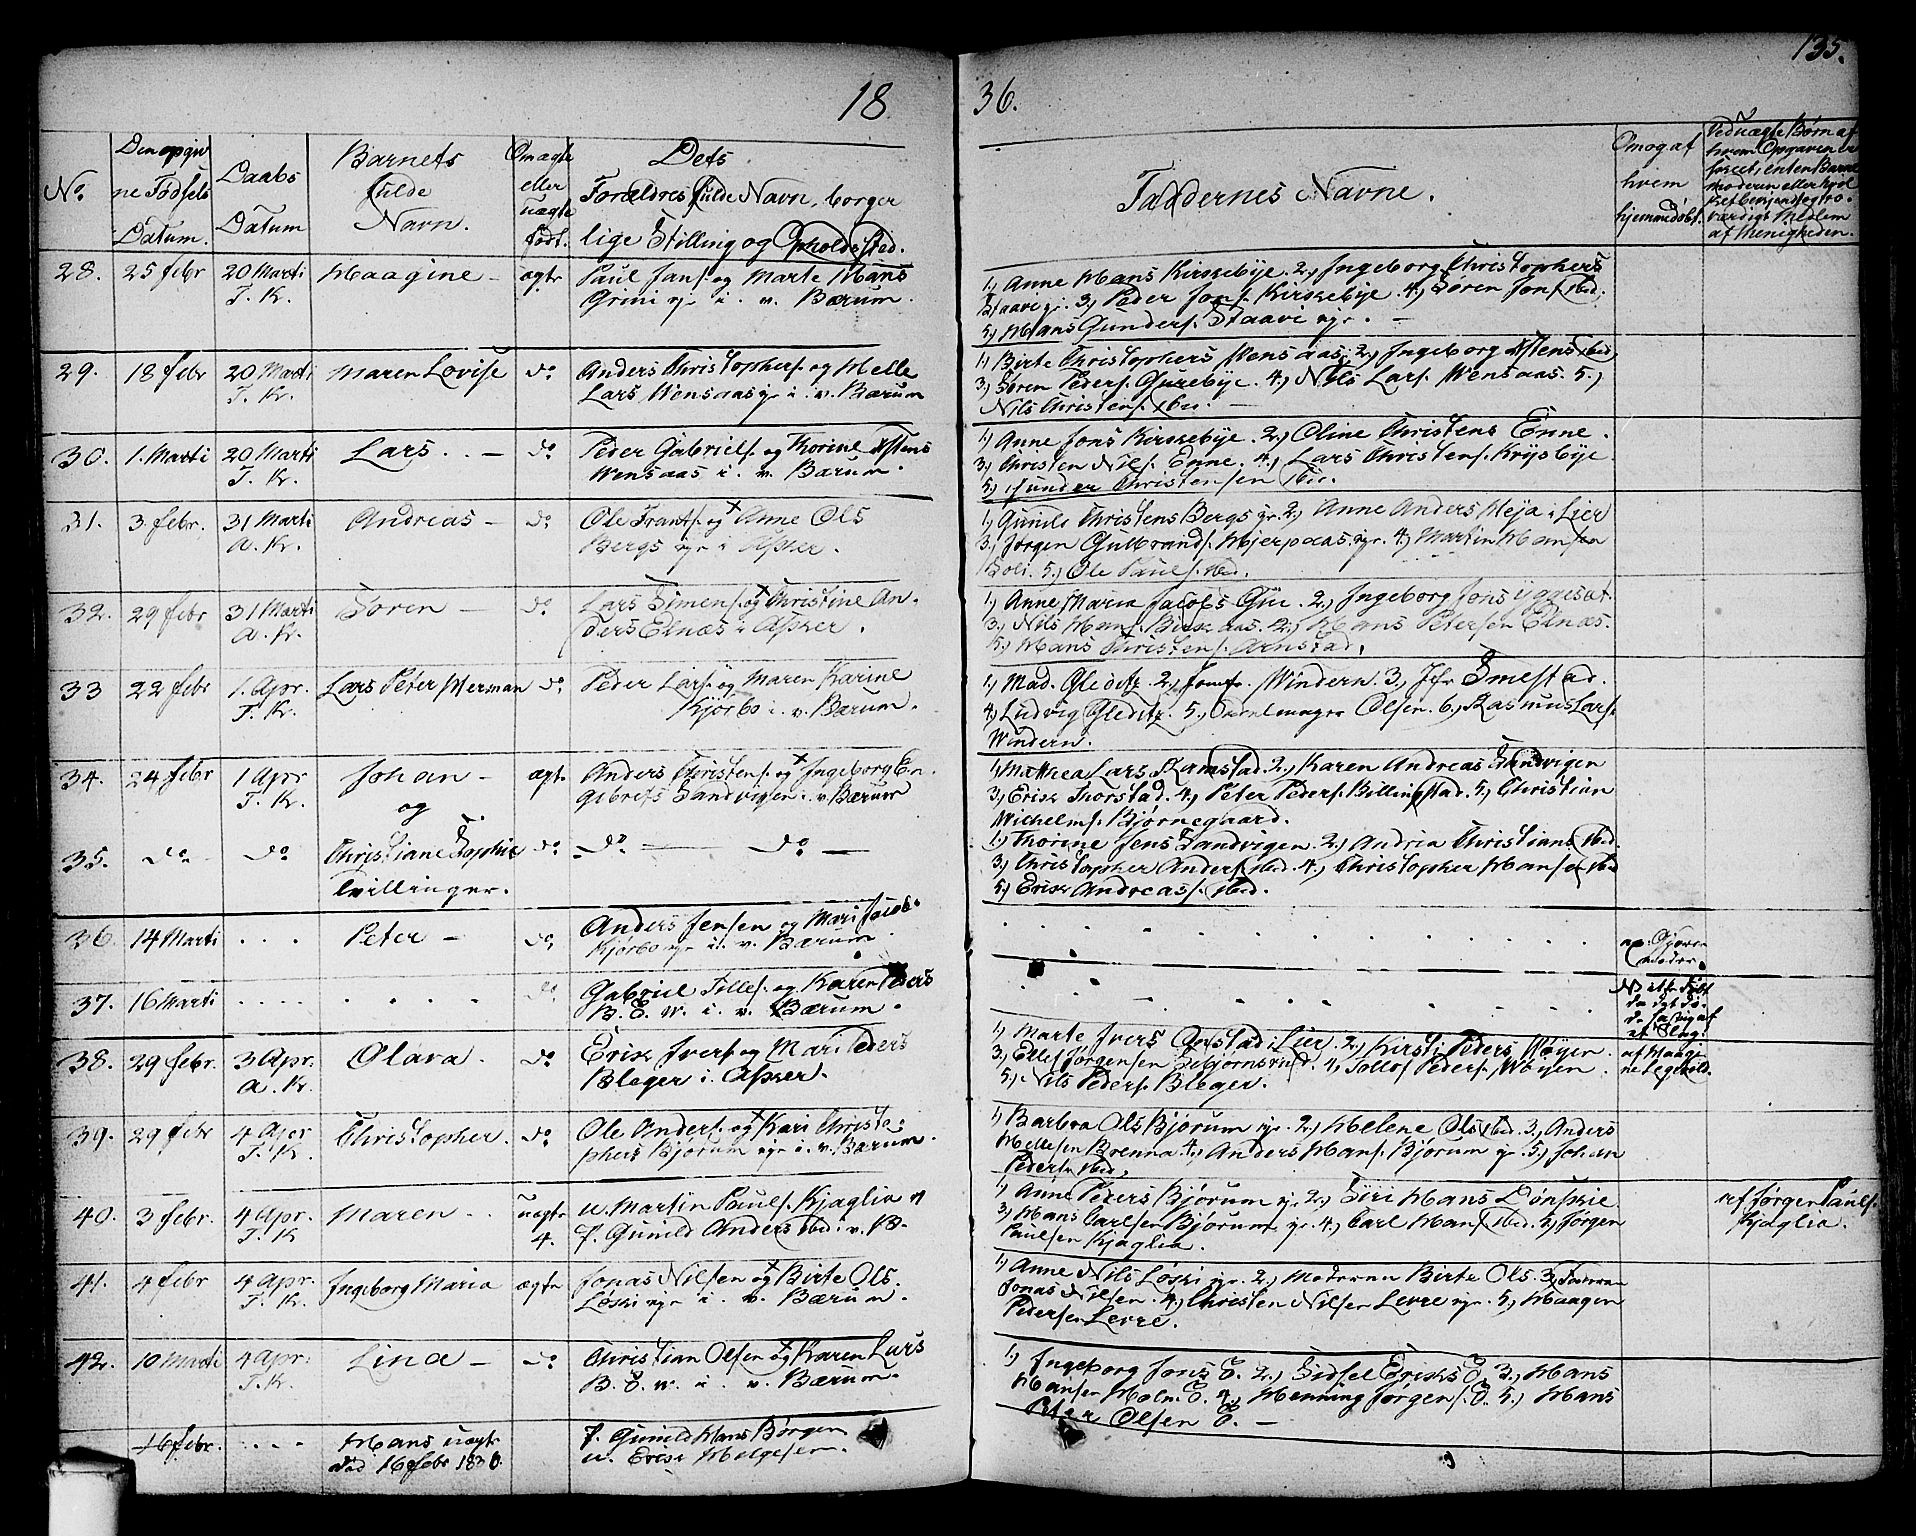 135.
18
36.
No.
Den opgiv
ne Fødsels
Datum.
Daabs
Datum
Barnets
fulde
Navn.
Om ægte
eller
uægte
født.
Dets
Forældres fulde Navn, borger
lige Stilling og Opholdssted.
Faddernes Navne.
Om og af
hvem
hjemmedøbt.
Ved uægte Børn af
hvem Opgaven er
skeet, enten Barne
moderen eller
værdigt Medlem
af Menigheden.
28. 25 febr 20 Marti Haagine - ægte Paul Jans. og Marte Hans
T. K. Grini ejr i. v. Bærum.
1, Anne Hans Kirkebye. 2, Ingeborg Christophers
Staavi ejr. 3, Peder Jons. Kirkebye. 4, Søren Jons. ibid.
5, Hans Gunders. Staavi ejr. -
29. 18 febr 20 Marti Maren Lovise do Anders Christophers. og Helle
T. K. Lars Wensaas ejr i. v. Bærum
1, Birte Christophers Wensaas. 2, Ingeborg Astens ibid
3, Søren Peders. Gurebye. 4, Nils Lars. Wensaas. 5,
Nils Christens. ibid. -
30. 1. Marti 20 Marti Lars. . - do Peder Gabriels. og Thorine Astens
T. K. Wensaas i. v. Bærum.
1, Anne Jons Kirkebye. 2, Oline Christens Enne.
3, Christen Nils. Enne. 4, Lars Christens. Krysbye.
5, Gunder Christensen ibid.
31. 3 febr. 31 Marti Andreas - do Ole Frants. og Anne Ols
A. K. Bergs ejr i Asker.
1, Gunild Christens Bergs ejr. 2, Anne Anders Heja i Lier
3, Jørgen Gulbrands. Hjerpaas ejr. 4, Martin Hansen
Soli. 5, Ole Pauls. ibid.
32. 29 febr 31 Marti Søren - do Lars Simens. og Christine An-
A. K. ders Elnæs i Asker.
1, Anne Maria Jacobs Gui. 2, Ingeborg Jons
3, Nils Hans. Birkaas. 2, Hans Petersen Elnæs.
5, Hans Christens. Arnstad.
33 22 febr 1. Apr. Lars Peter Herman do Peder Lars. og Maren Karine
T. K. Kjørbo i. v. Bærum.
1, Mad. Gleditz. 2, Jomfr. Windern. 3, Jfr Smestad.
4, Ludvig Gleditz. 5, Olsen. 6, Rasmus Lars.
Windern.
34. 24 febr 1 Apr Johan - ægt. Anders Christens. og Ingeborg En-
T. K. og gebrets Sandvigen i. v. Bærum
1, Mathea Lars Ramstad. 2, Karen Andreas Sandvigen
3, Erik Thorstad. 4, Peter Peders. Billingstad. 5, Christian
Wichelms. Bjørnegaard.
35. do do Christiane Sophie do do - do -
Tvillinger.
1, Thorine Jens Sandvigen. 2, Andria Christians ibid.
3, Christopher Anders. ibid. 4, Christopher Hansen ibid
5, Erik Andreas. ibid.
36. 14 Marti . . . Peter - do Anders Jensen og Mari Jacobs
Kjørbo ejr i. v. Bærum.
af Gjøren
moder.
37. 16 Marti . . . . . . . . do Gabriel Tilles. og Karen Peders
B. E. W. i. v. Bærum.
38. 29 febr. 3 Apr. Olava. do Erik Ivers. og Mari Peders
A. K. Bleger i. Asker.
1, Marte Ivers Onstad i Lier. 2, Kirsti Peders Wøyen.
3, Ellef Jørgensen Bjørnsrud. 4, Tollof Peders. Wøyen.
5, Nils Peders. Bleger.
39. 29 febr 4 Apr Christopher. do Ole Anders. og Kari Christo-
T. K. phers Bjørum ejr i. v. Bærum.
1, Barbra Ols Bjørum ejr. 2, Helene Ols ibid. 3, Anders
Hellesen Brenna. 4, Anders Hans. Bjørum ejr. 5, Johan
Peders. ibid.
40. 3 febr. 4 Apr. Maren. . uægte u. Martin Pauls. Kjaglia og
T. K 4. f. Gunild Anders ibid i. v. B.
1, Anne Peders Bjørum ejr. 2, Siri Hans Dønskie
3, Hans Carlsen Bjørum ejr. 4, Carl Hans. ibid. 5, Jørgen
Paulsen Kjaglia.
af Jørgen Pauls.
Kjaglia.
41. 4 febr 4 Apr. Ingeborg Maria ægte Jonas Nilsen og Birte Ols.
T. K. Løski ejr i. v. Bærum.
1, Anne Nils Løski ejr. 2, Moderen Birte Ols. 3, Faderen
Jonas Nilsen. 4, Christen Nilsen Levre ejr. 5, Haagen
Pedersen Levre.
42. 10 Marti 4 Apr. Lina - do Christian Olsen og Karen Lars
T. K. B. E. W. i. v. Bærum.
1, Ingeborg Jons E. 2, Sidsel Eriks E. 3, Hans
Hansen Holm. E. 4, Henning Jørgens. E. 5, Hans
Peter Olsen E. -
16 febr. . . . . Hans uægte f. Gunild Hans Børgen
død 16 febr 1836. u. Erik Helgesen.